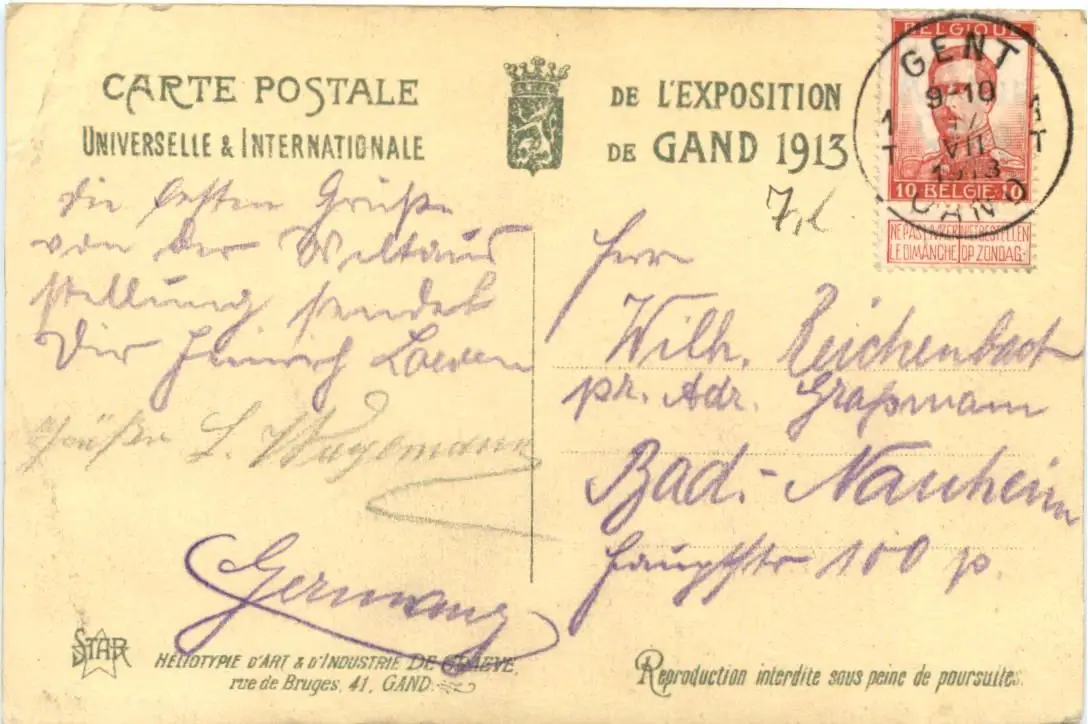 CARTE POSTALE
UNIVERSELLE & INTERNATIONALE
DE L'EXPOSITION
DE GAND 1913
BELGIQUE
10 BELGIE 10
NE PAS LIVRER NIET BESTELLEN
LE DIMANCHE OP ZONDAG
GENT
9-10
VII
1913
GAND
die besten Grüße
von der Weltaus
stellung sendet
Dir Heinrich
Grüße L.
Germany
Herr
Wilh. Reichenbach
pr. Adr. Graßmann
Bad.-Nauheim
Hauptstr 100 p.
STAR
HÉLIOTYPIE D'ART & D'INDUSTRIE DE GRAEVE,
rue de Bruges, 41, GAND.
Reproduction interdite sous peine de poursuites.